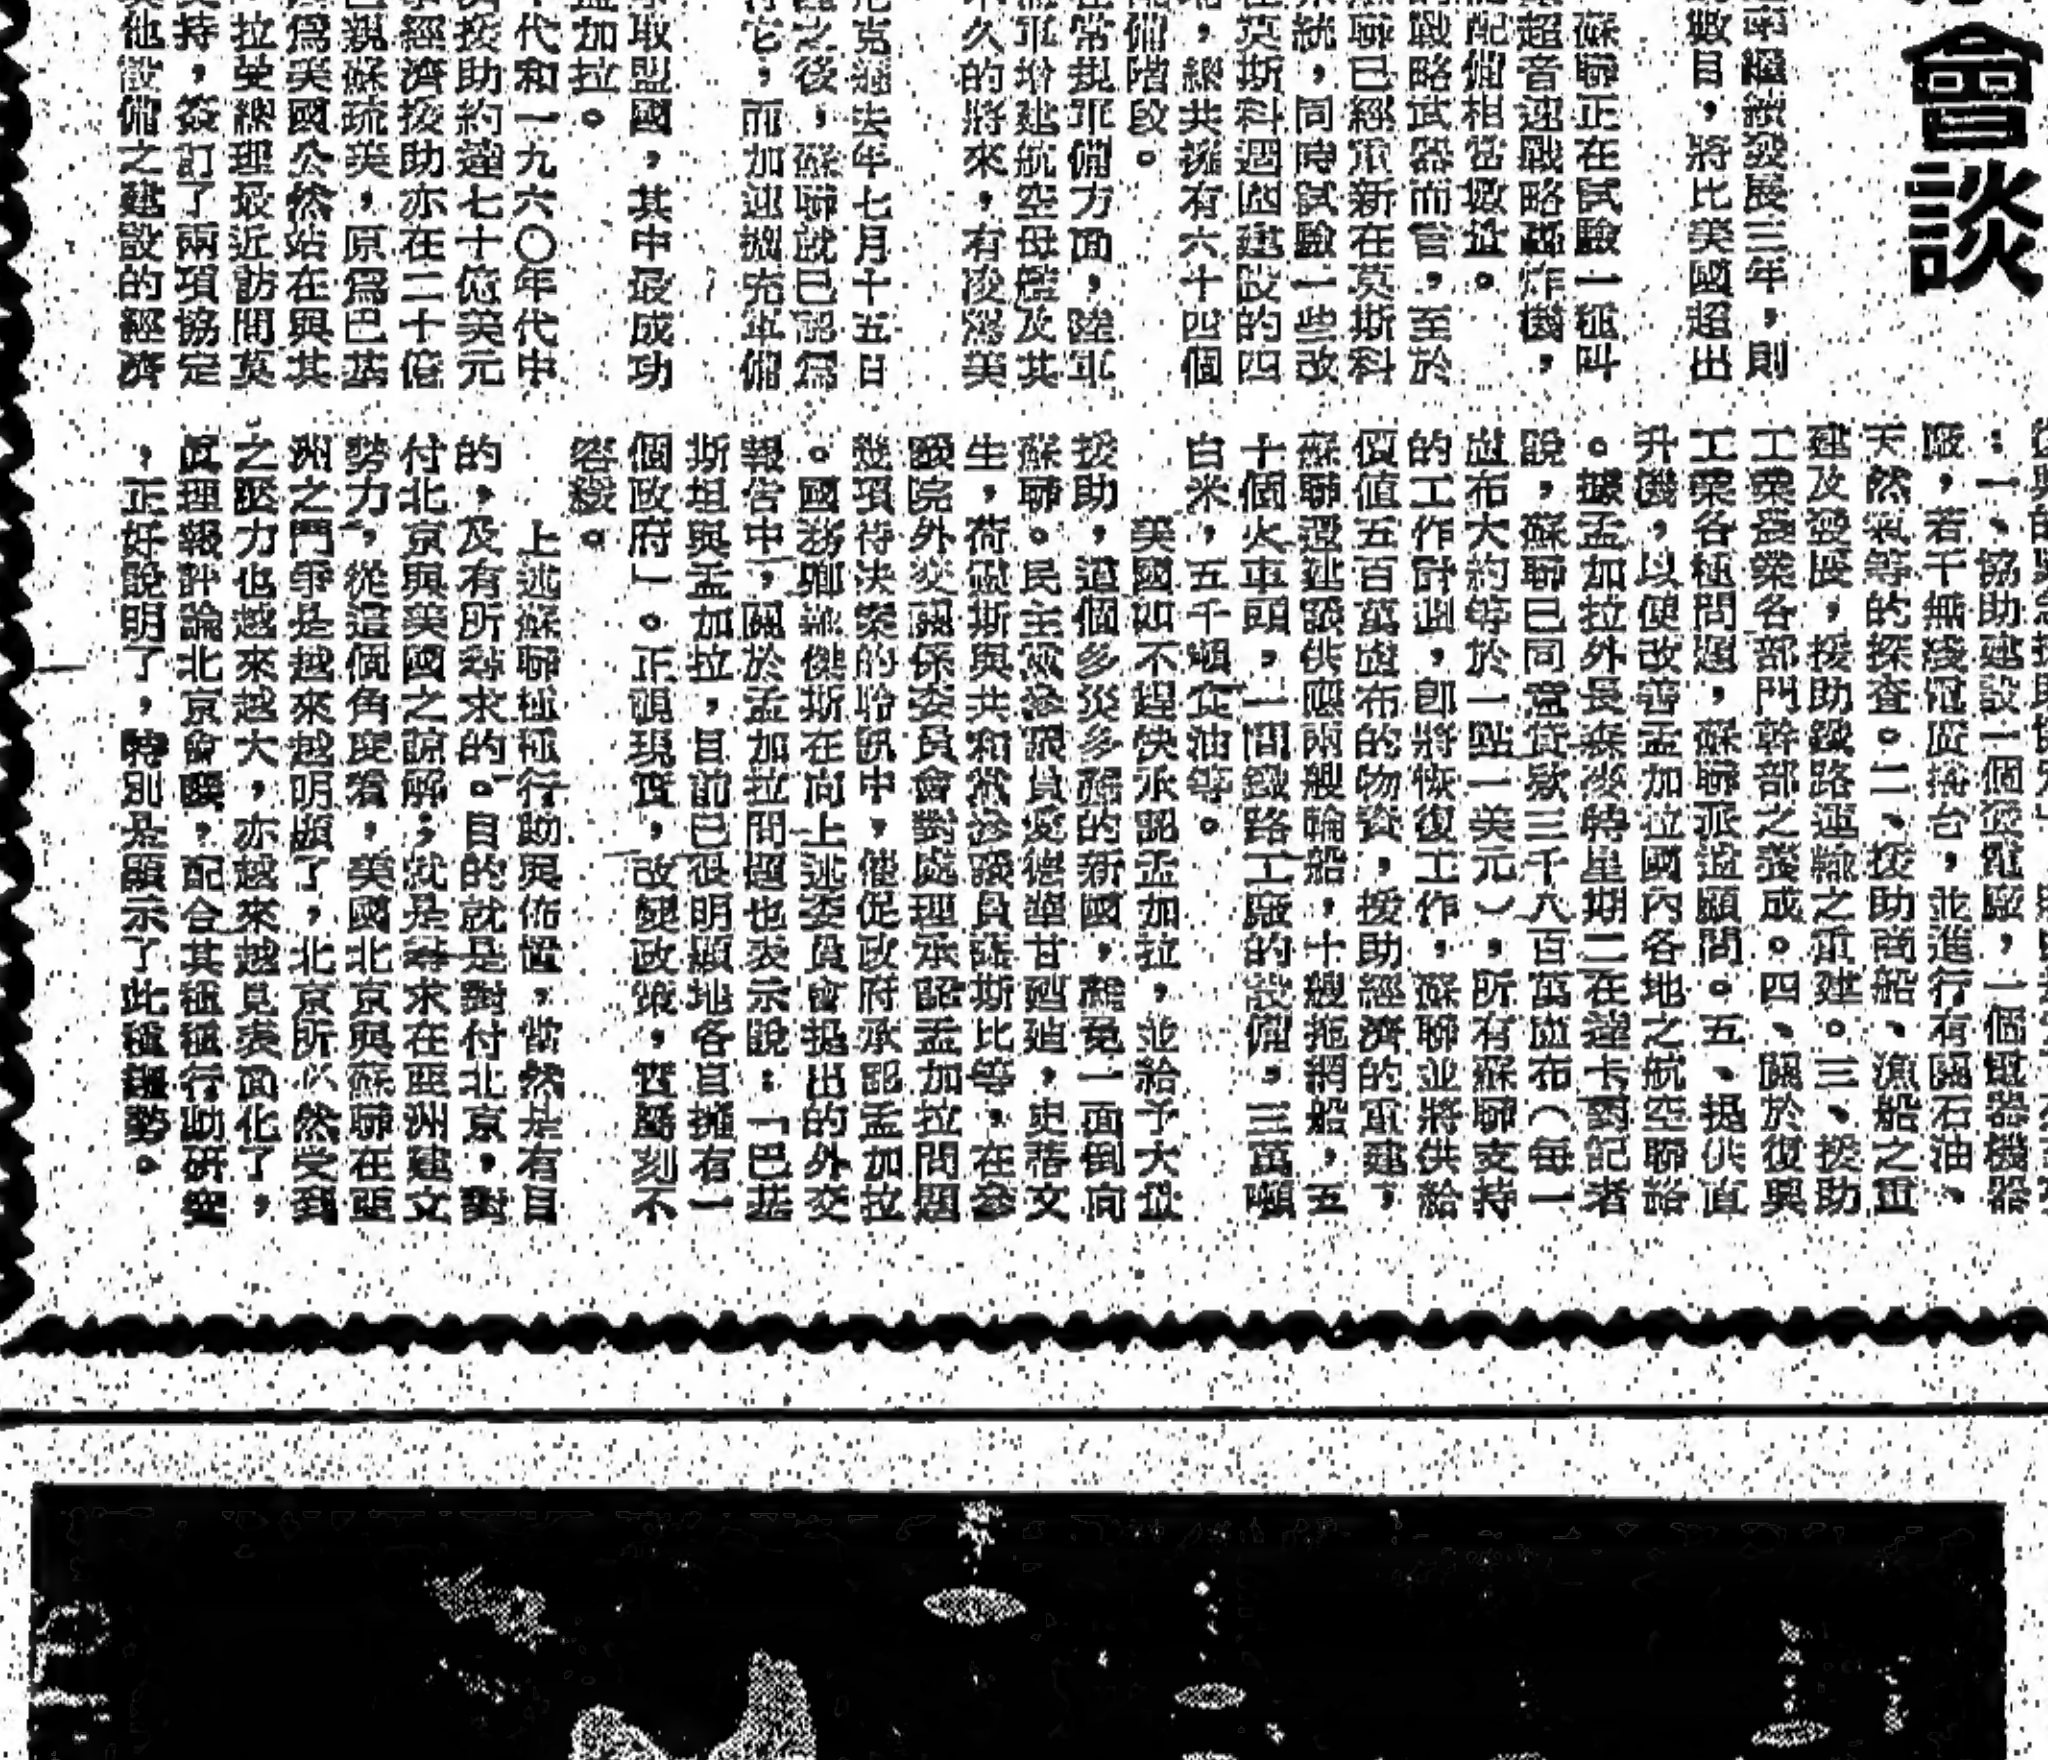 會談
三年，則
數目，將比美國超出
蘇聯正在試驗一種叫
超音速戰略轟炸機，
配備相當數量。
的戰略武器而言，至於
聯已經重新在莫斯科
統，同時試驗一些改
莫斯科週圍建設的四
，總共擁有六十四個
備階段。
常規軍備方面，陸軍
軍增建航空母艦及其
久的將來，有凌駕美
去年七月十五日
之後，蘇聯就已認爲
它，而加速擴充軍備
取盟國，其中最成功
孟加拉。
代和一九六〇年代中
援助約達七十億美元
經濟援助亦在二十億
親蘇疏美，原爲巴基
爲美國公然站在與其
拉曼總理最近訪問莫
持，簽訂了兩項協定
他設備之建設的經濟
：一、協助建設一個發電廠，一個電器機器
廠，若干無綫電廣播台，並進行有關石油、
天然氣等的探查。二、援助商船、漁船之重
建及發展，援助鐵路運輸之重建。三、援助
工業農業各部門幹部之養成。四、關於復興
工業各種問題，蘇聯派遣顧問。五、提供直
升機，以便改善孟加拉國內各地之航空聯絡
。據孟加拉外長森麥特星期二在達卡對記者
說，蘇聯已同意貸款三千八百萬盧布（每一
盧布大約等於一點一美元），所有蘇聯支持
的工作計劃，卽將恢復工作，蘇聯並將供給
價值五百萬盧布的物資，援助經濟的重建，
蘇聯還建議供應兩艘輪船，十艘拖網船，五
十個火車頭，一間鐵路工廠的設備，三萬噸
白米，五千噸食油等。
美國如不趕快承認孟加拉，並給予大量
援助，這個多災多難的新國，難免一面倒向
蘇聯。民主黨參議員愛德華甘迺迪，史蒂文
生，荷思斯與共和黨參議員薛斯比等，在參
議院外交關係委員會對處理承認孟加拉問題
幾項待決案的聆訊中，催促政府承認孟加拉
。國務卿羅傑斯在向上述委員會提出的外交
報告中，關於孟加拉問題也表示說：「巴基
斯坦與孟加拉，目前已很明顯地各自擁有一
個政府」。正視現實，改變政策，實屬刻不
容緩。
上述蘇聯種種行動與佈置，當然是有目
的，及有所尋求的。目的就是對付北京，對
付北京與美國之諒解；就是尋求在亞洲建立
勢力，從這個角度看，美國北京與蘇聯在亞
洲之鬥爭是越來越明顯了，北京所以然受到
之壓力也越來越大，亦越來越見表面化了，
眞理報評論北京會談，配合其種種行動研究
，正好說明了，特別是顯示了此種趨勢。